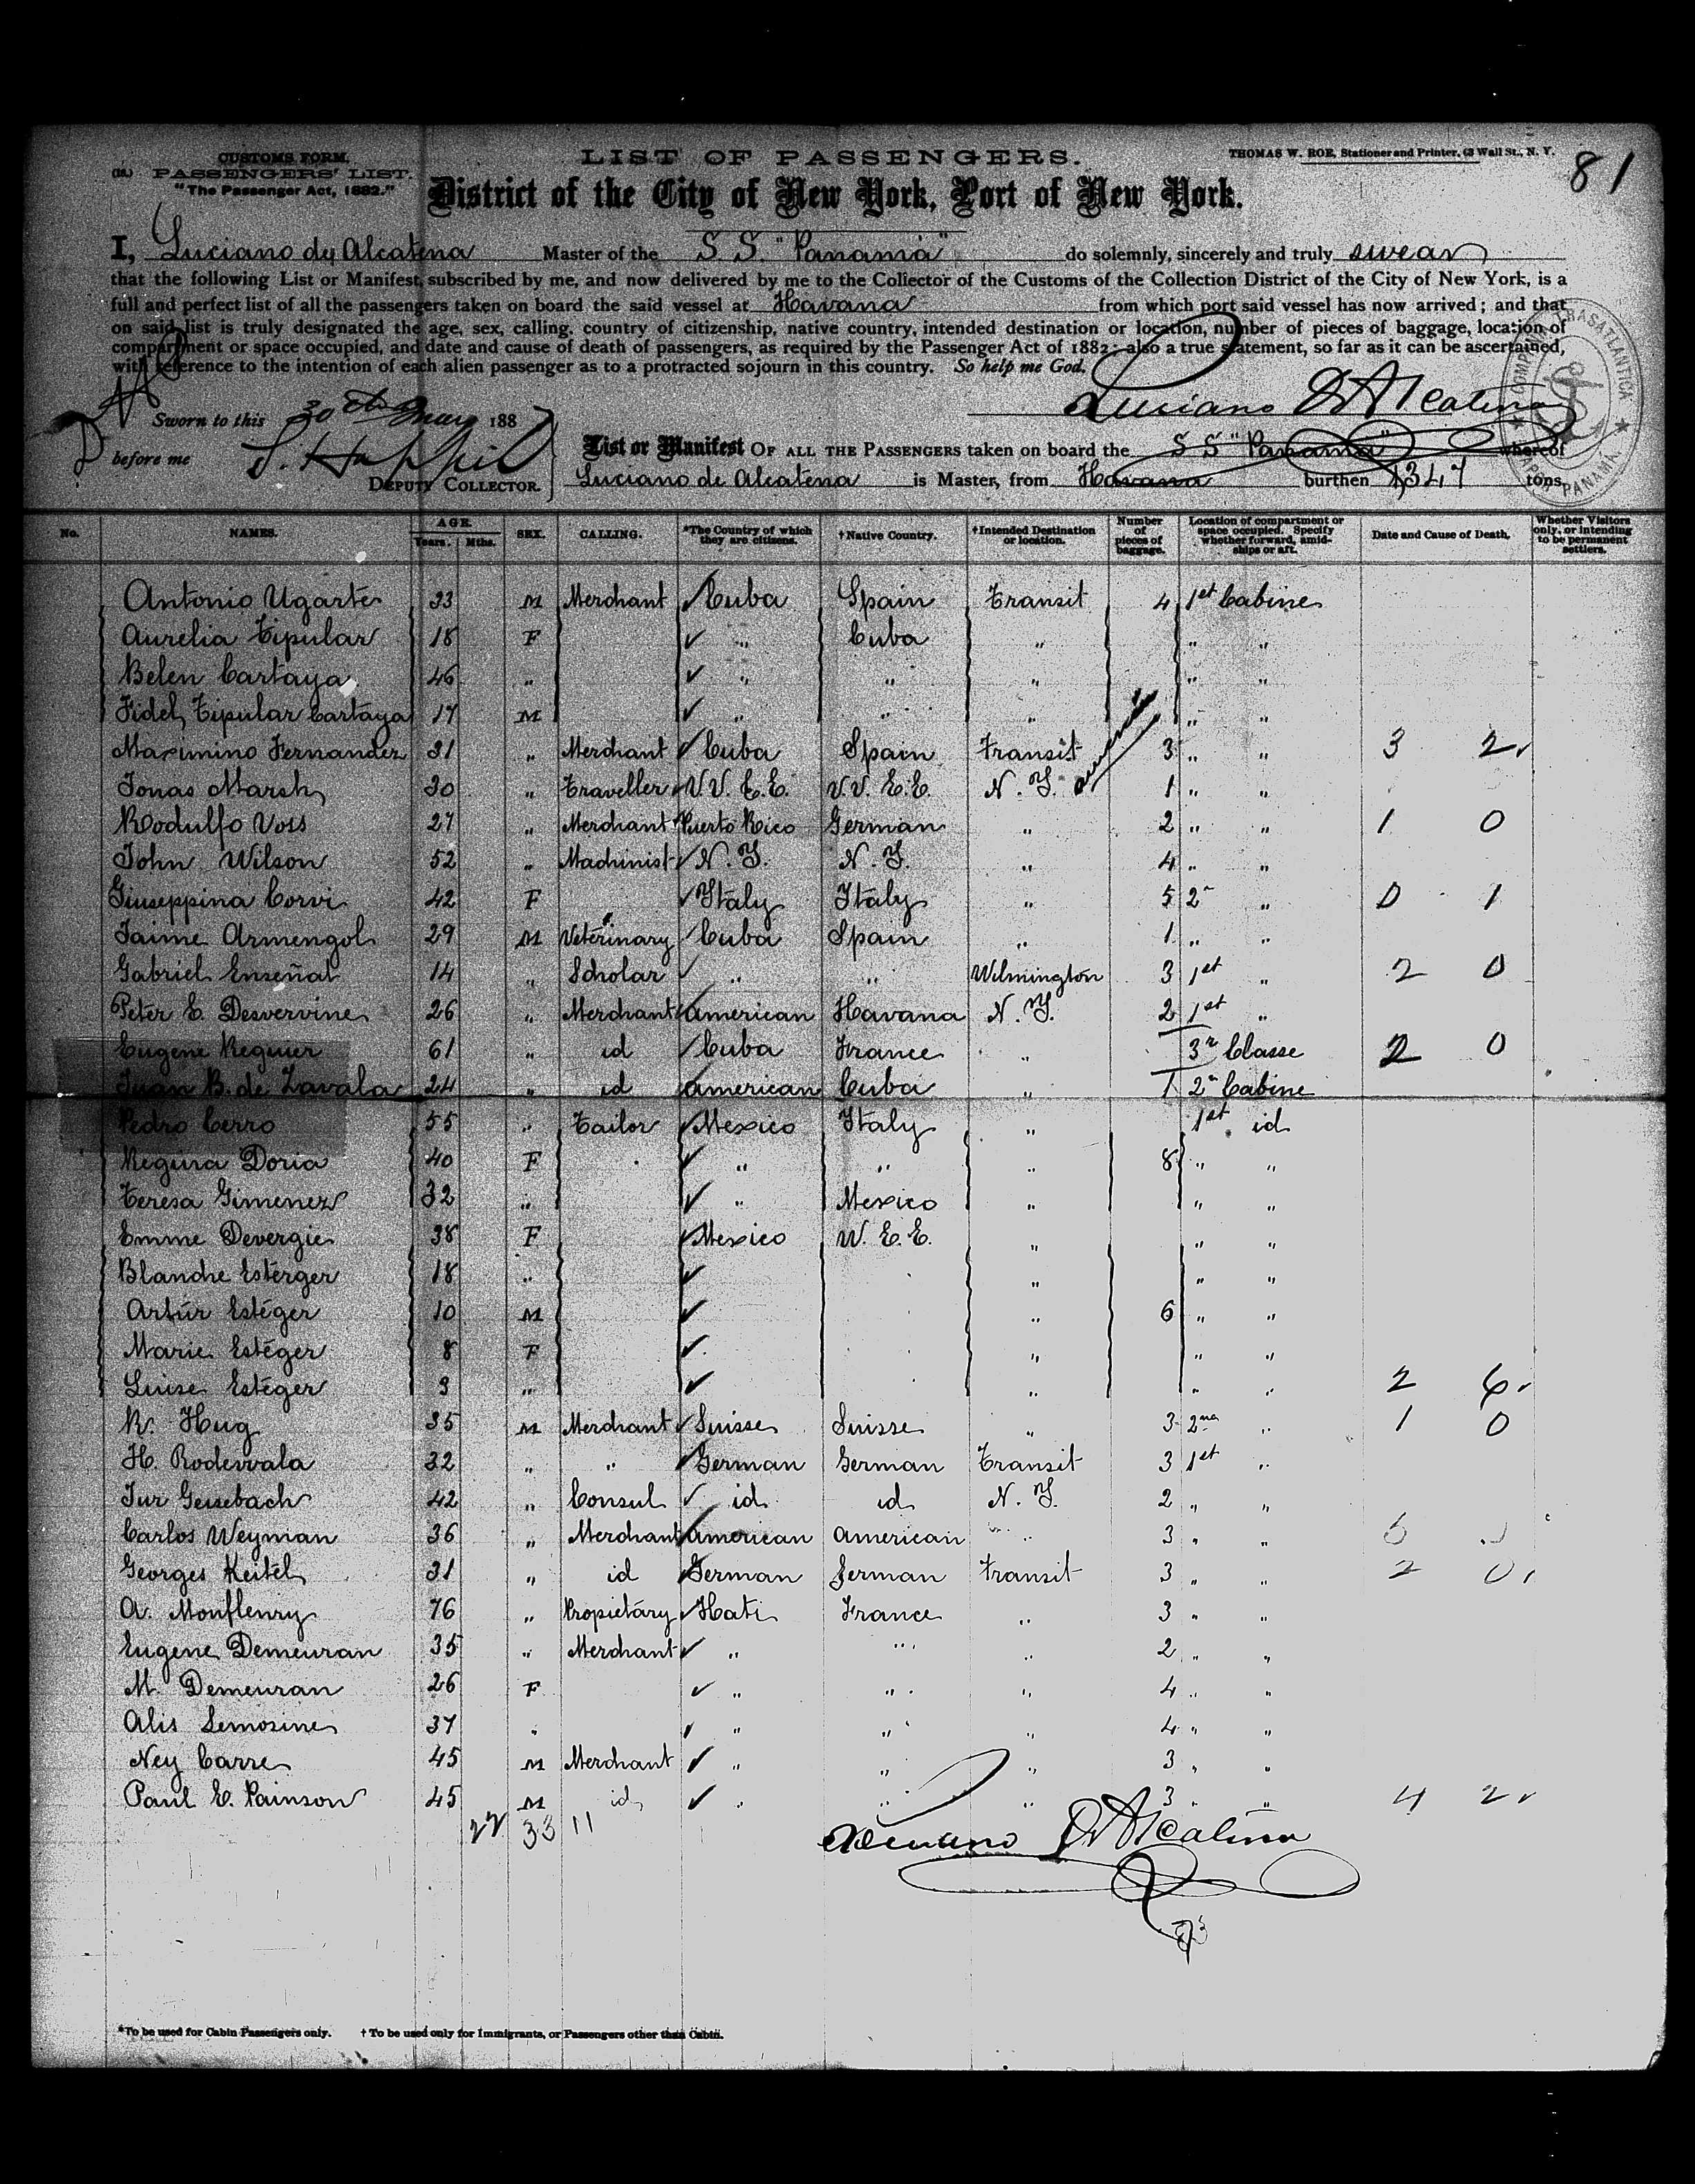 CUSTOMS FORM.
PASSENGERS' LIST.
"The Passenger Act, 1882."
LIST OF PASSENGERS.
THOMAS W. ROE, Stationer and Printer, 63 Wall St., N. Y.
81
District of the City of New York, Port of New York.
I, Luciano de Alcatena Master of the S S "Panamá" do solemnly, sincerely and truly swear
that the following List or Manifest, subscribed by me, and now delivered by me to the Collector of the Customs of the Collection District of the City of New York, is a
full and perfect list of all the passengers taken on board the said vessel at Havana from which port said vessel has now arrived; and that
on said list is truly designated the age, sex, calling, country of citizenship, native country, intended destination or location, number of pieces of baggage, location of
compartment or space occupied, and date and cause of death of passengers, as required by the Passenger Act of 1882; also a true statement, so far as it can be ascertained,
with reference to the intention of each alien passenger as to a protracted sojourn in this country. So help me God.
Luciano D Alcatena
Sworn to this 30 May 188
before me
DEPUTY COLLECTOR.
List or Manifest OF ALL THE PASSENGERS taken on board the S S "Panamá" whereof
Luciano de Alcatena is Master, from Havana burthen 1347 tons
TRASATLANTICA
VAPOR PANAMÁ
No. NAMES. AGE. Years. Mths. SEX. CALLING. *The Country of which they are citizens. †Native Country. †Intended Destination or location. Number of pieces of baggage. Location of compartment or space occupied. Specify whether forward, amidships or aft. Date and Cause of Death. Whether Visitors only, or intending to be permanent settlers.
Antonio Ugarte 33 M Merchant Cuba Spain Transit 4 1st Cabine
Aurelia Tipular 18 F " Cuba " " "
Belen Cartaya 46 " " " " " "
Fidel Tipular Cartaya 17 M " " " " "
Maximino Fernandez 31 " Merchant Cuba Spain Transit 3 " " 3 2
Jonas Marsh 30 " Traveller V.V. E.E. V.V. E.E. N. Y. 1 " "
Rodulfo Voss 27 " Merchant Puerto Rico German " 2 " " 1 0
John Wilson 52 " Machinist N. Y. N. Y. " 4 " "
Giuseppina Corvi 42 F Italy Italy " 5 2ª " 0 1
Jaime Armengol 29 M Veterinary Cuba Spain " 1 " "
Gabriel Enseñat 14 " Scholar " " Wilmington 3 1st " 2 0
Peter E. Desvervine 26 " Merchant American Havana N. Y. 2 1st "
Eugene Reguier 61 " id Cuba France " 3ª Classe 2 0
Juan B. de Zavala 24 " id American Cuba " 1 2ª Cabine
Pedro Cerro 55 " Tailor Mexico Italy " 1st id
Regina Doria 40 F " " " 8 " "
Teresa Gimenez 32 " " Mexico " " "
Emme Devergie 38 F Mexico W. E.E. " " "
Blanche Esterger 18 " " " "
Artúr Estéger 10 M " 6 " "
Marie Estéger 8 F " " "
Luise Estéger 3 " " " " 2 6
R. Hug 35 M Merchant Suisse Suisse " 3 2na " 1 0
H. Rodewala 32 " " German German Transit 3 1st "
Jur Geisebach 42 " Consul id id N. Y. 2 " "
Carlos Weyman 36 " Merchant American American " 3 " "
Georges Keitel 31 " id German German Transit 3 " " 2 0
A. Monflenry 76 " Propietáry Hati France " 3 " "
Eugene Demeuran 35 " Merchant " " " 2 " "
M. Demeuran 26 F " " " 4 " "
Alis Lemosine 37 " " " " 4 " "
Ney Carre 45 M Merchant " " " 3 " "
Paul E. Painson 45 M id " " " 3 " " 4 2
22 33 11
Luciano D Alcatena
*To be used for Cabin Passengers only. †To be used only for Immigrants, or Passengers other than Cabin.